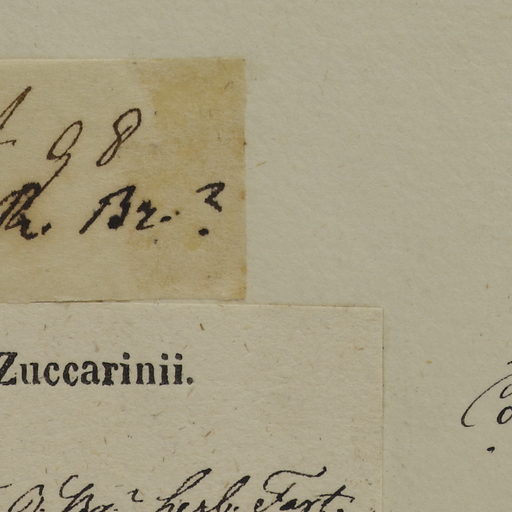 98
R. Br. ?
Zuccarinii.
R. Br. ? herb. Fart.